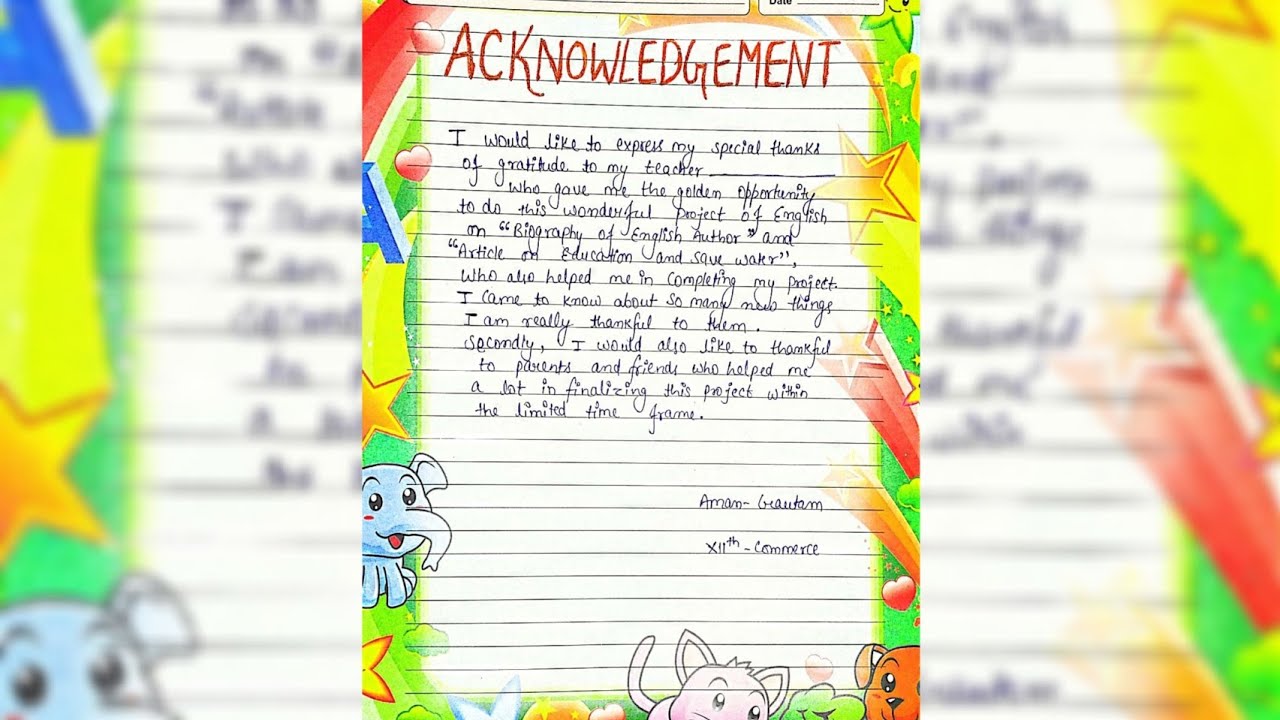 Date
ACKNOWLEDGEMENT
I would like to express my special thanks
of gratitude to my teacher
who gave me the golden opportunity
to do this wonderful project of English
on "Biography of English Author" and
"Article on Education and save water",
who also helped me in completing my project.
I came to know about so many new things
I am really thankful to them.
secondly, I would also like to thankful
to parents and friends who helped me
a lot in finalizing this project within
the limited time frame.
Aman- Gautam
XIIth - Commerce